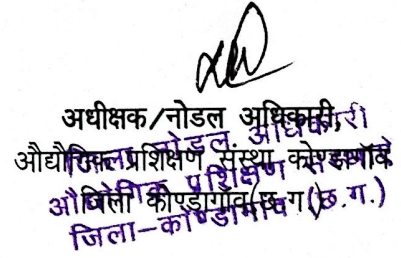 अधीक्षक/नोडल अधिकारी,
औद्योगिक प्रशिक्षण संस्था कोण्डागॉव
जिला कोण्डागॉव(छ.ग.)
जिला नोडल अधिकारी
औद्योगिक प्रशिक्षण संस्था
जिला-कोण्डागांव (छ.ग.)